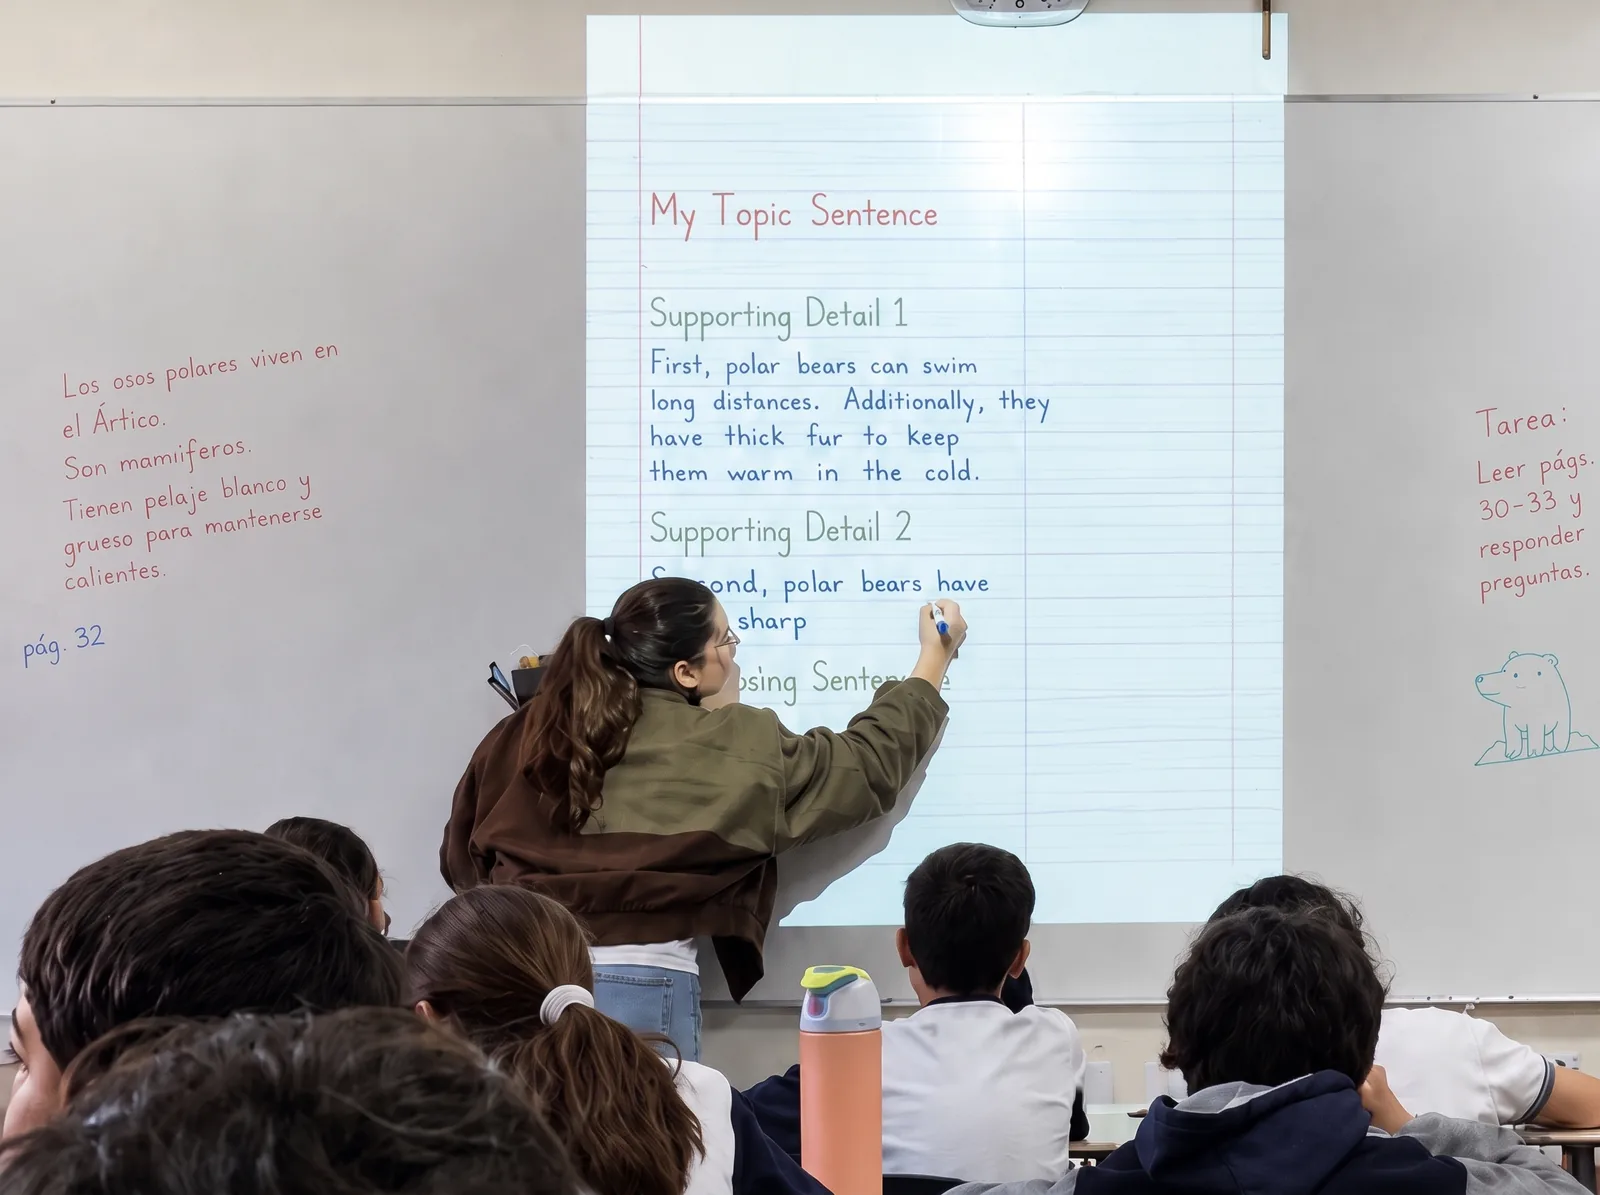 Los osos polares viven en
el Ártico.
Son mamiiferos.
Tienen pelaje blanco y
grueso para mantenerse
calientes.
pág. 32
My Topic Sentence
Supporting Detail 1
First, polar bears can swim
long distances. Additionally, they
have thick fur to keep
them warm in the cold.
Supporting Detail 2
polar bears have
sharp
Tarea:
Leer págs.
30-33 y
responder
preguntas.